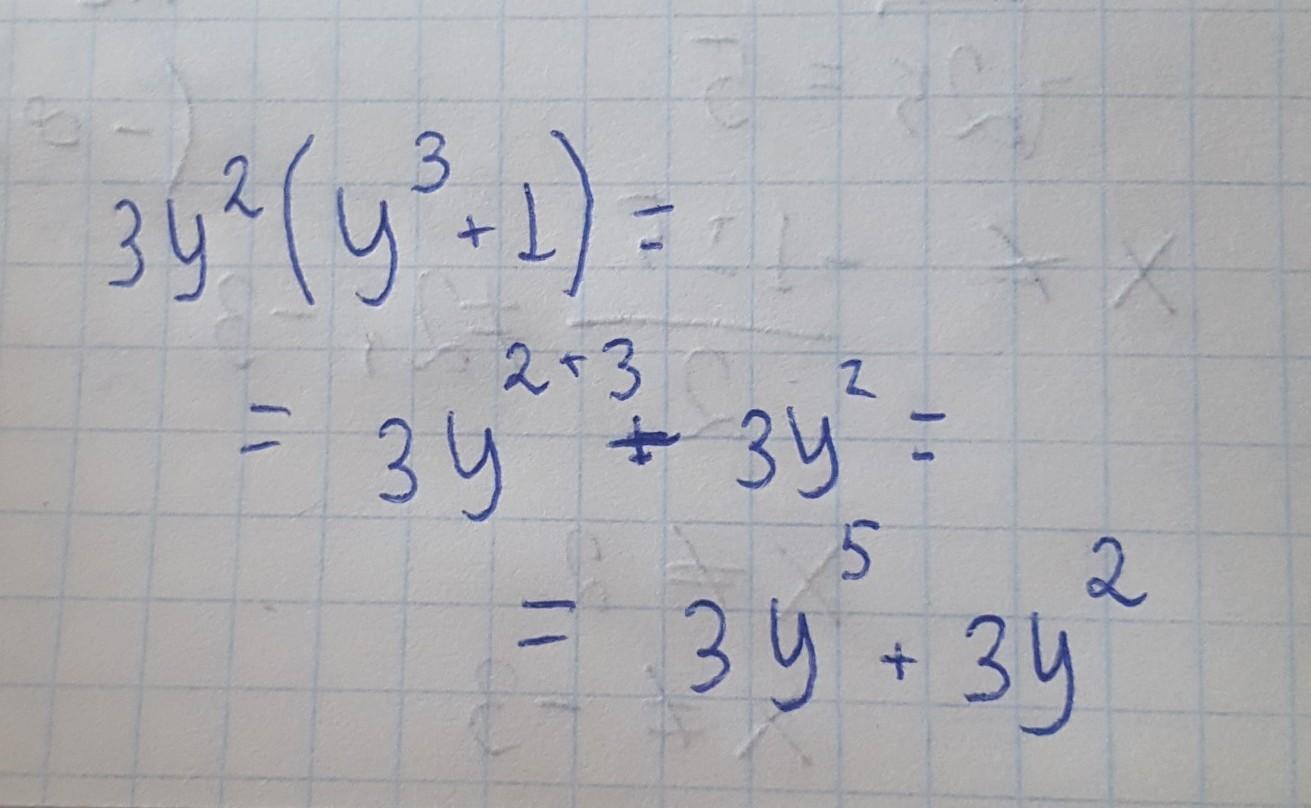 3y²(y³+1)=
= 3y²⁺³ + 3y² =
= 3y⁵ + 3y²